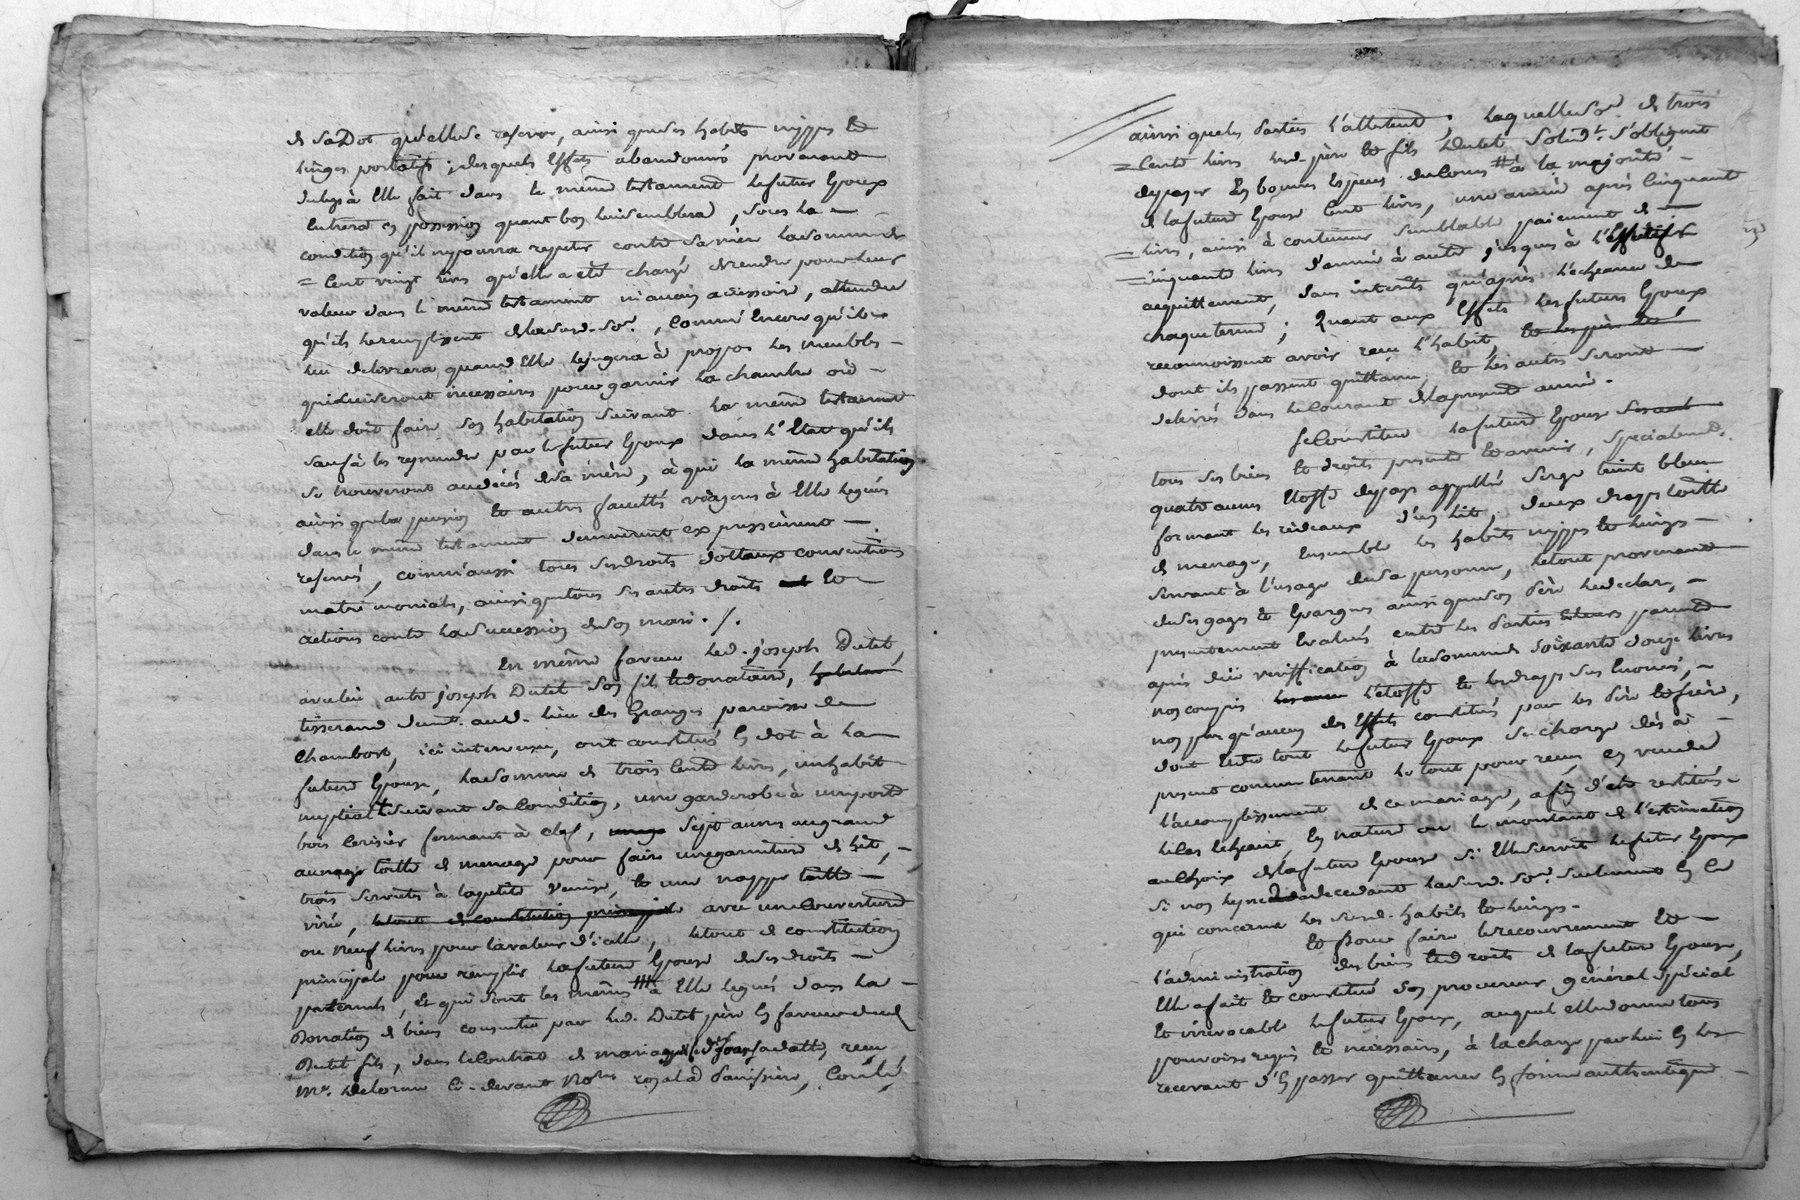 de sa Dot qu'elle se reserve, ainsi que ses habits nippes et
linges portatifs ; desquels Effets abandonnés provenant
du legs à Elle fait dans le même testament le futur Epoux
Entrera en possession quant bon lui semblera, sous la
condition qu'il ne pourra repeter contre sa mère la somme de
= Cent vingt livres qu'elle a été chargé de rendre pour leur
valeur dans le même testament ni aucun accessoire, attendu
qu'ils le remplissent de la susd. Som.e, Comme Encore qu'il
lui delivrera quand Elle le jugera à propos les meubles
qui lui seront necessaires pour garnir la chambre où
elle doit faire son habitation suivant le même testament
sauf à les reprendre par le futur Epoux dans l'Etat qu'ils
se trouveront au decès de sa mère, à qui la même habitation
ainsi que la pension et autres facultés viagères à Elle leguées
dans le même testament demeurent expressement
reservés, comm'aussi tous ses droits dottaux conventions
matrimoniales, ainsi que tous ses autres droits et
actions contre la succession de son mari ./.
En même faveur led. joseph Dutel,
avec lui autre joseph Dutel son fils et donataire,
tisserand demt. aud. lieu des Granges paroisse de
Chambost, ici intervenu, ont constitué En dot à la
future Epouse, la somme de trois Cents livres, un habit
nuptial suivant sa Condition, une garderobe à une porte
bois Cerisier fermant à clef, sept aunes au grand
aunage toille de menage pour faire une garniture de lit,
trois serviettes à la petite Venise, et une nappe toille
avec une Couverture
ou neuf livres pour la valeur d'icelle, le tout de constitution
principale pour remplir la future Epouse de ses droits
paternels, Et qui sont les mêmes à Elle legués dans la
Donation de biens consentie par led. Dutel père En faveur dud.
Dutel fils, dans le Contrat de mariage de sa datte, reçu
Me. Delorme Ci-devant No.re royal à Panissière, Controlé
ainsi que les parties l'attestent ; laquelle Som.e de trois
= Cents livres lesd. père et fils Dutel Solid.t s'obligent
de payer En bonnes Espèces de Cours à la majorité
de la future Epouse Cent livres, une année après Cinquante
= livres, ainsi à continuer semblable paiement de
= Cinquante livres d'année à autre jusques à l'Effectif
acquittement, sans interêts qu'après l'echeance de
chaque terme ; Quant aux Effets les futurs Epoux
reconnoissent avoir reçu l'habit,
dont ils passent quittance, et les autres seront
delivrés dans le Courant de la presente année.
Se Constitue la future Epouse
tous ses biens et droits presents et avenir, specialement
quatre aunes Etoffe de pays appellée Serge teint bleu
formant les rideaux d'un lit, deux draps toille
de menage, Ensemble les habits nippes et linges
servant à l'usage de sa personne, le tout provenant
de ses gages et Epargnes ainsi que son père le declare,
presentement Evalués entre les parties parents
après dûe veriffication à la somme de soixante douze livres
non compris l'étoffe et les draps sus Enoncés,
non plus qu'aucun des Effets constitués par les père et frère,
dont du tout le futur Epoux se charge dès à
present comme tenant le tout pour reçu en vertu de
l'accomplissement de ce mariage, afin d'etre restitués
le Cas Echeant, En nature ou le montant de l'estimation
au Choix de la future Epouse si Elle survit le futur Epoux
si non le predecedant la susd. Som.e seulement En ce
qui concerne les susd. habits et linges.
Et Pour faire le recouvrement et
l'administration des biens et droits de la future Epouse,
Elle a fait et constitué son procureur général spécial
et irrevocable le futur Epoux, auquel elle donne tous
pouvoirs requis et necessaires, à la charge par lui En les
recevant d'En passer quittance En forme authentique